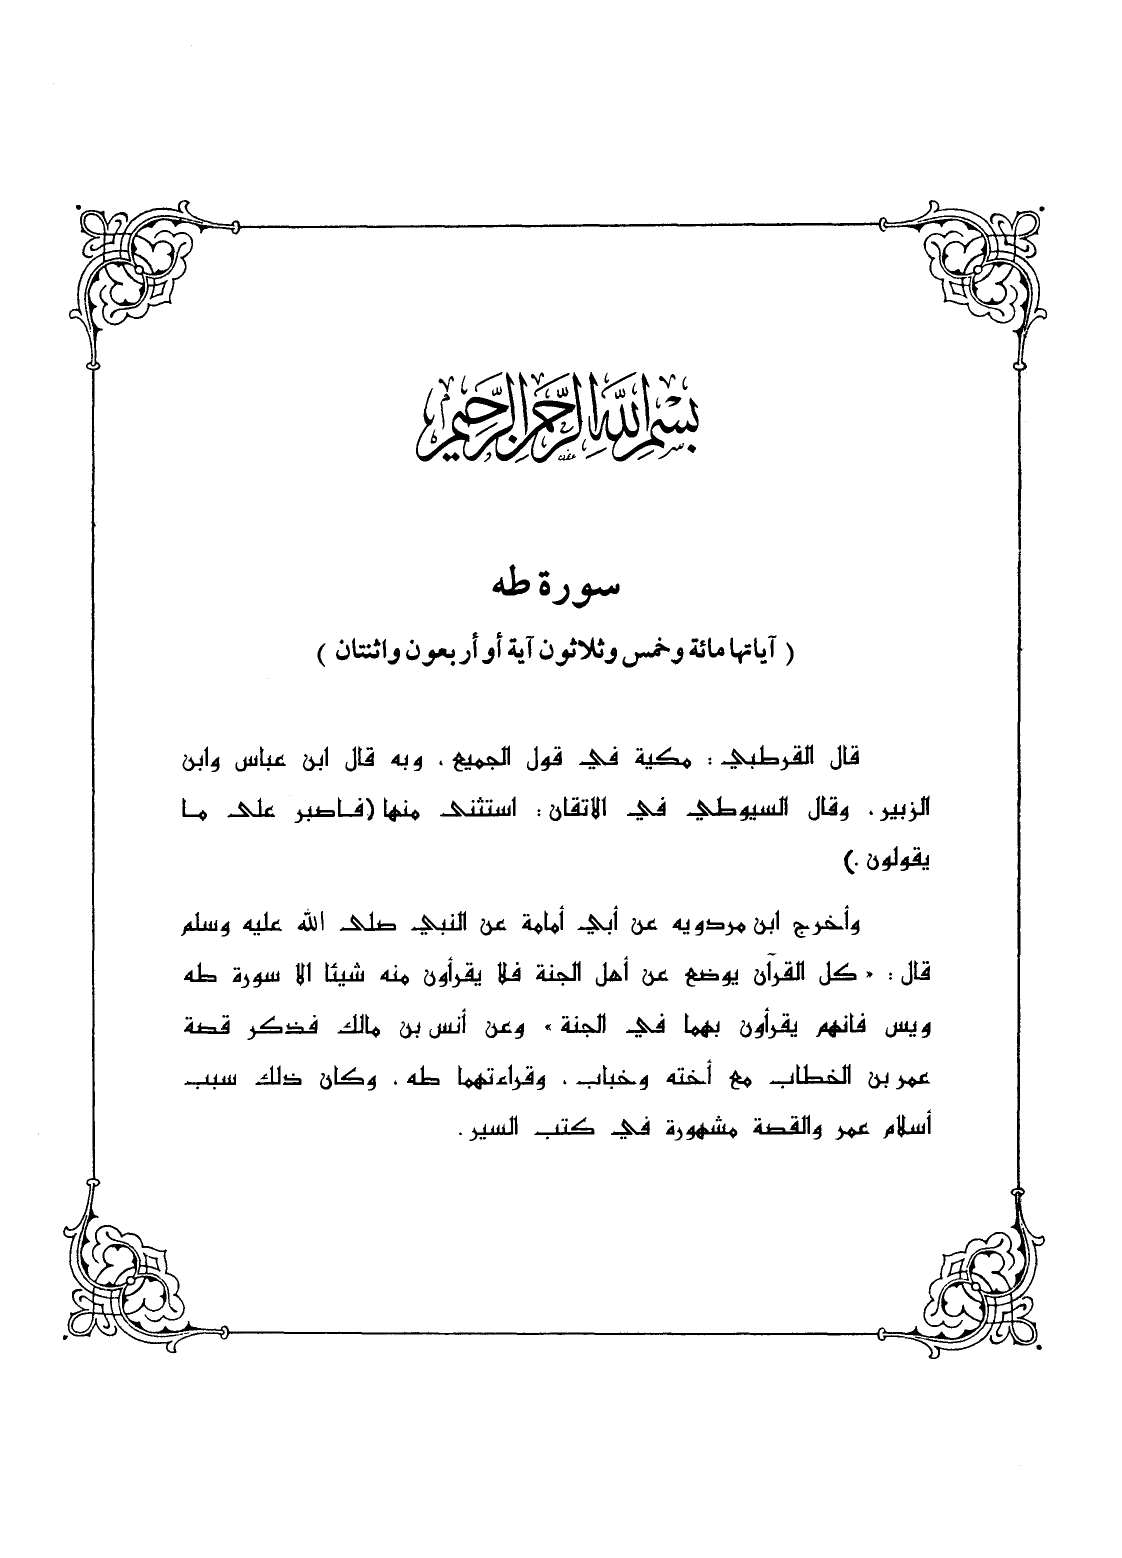 بسم الله الرحمن الرحيم
سورة طه
( آياتها مائة وخمس وثلاثون آية أو أربعون واثنتان )
قال القرطبي : مكية في قول الجميع ، وبه قال ابن عباس وابن
الزبير ، وقال السيوطي في الاتقان : استثنى منها (فاصبر على ما
يقولون .)
وأخرج ابن مردويه عن أبي أمامة عن النبي صلى الله عليه وسلم
قال : « كل القرآن يوضع عن أهل الجنة فلا يقرأون منه شيئا الا سورة طه
ويس فانهم يقرأون بهما في الجنة » وعن أنس بن مالك فذكر قصة
عمر بن الخطاب مع أخته وخباب ، وقراءتهما طه ، وكان ذلك سبب
أسلام عمر والقصة مشهورة في كتب السير .